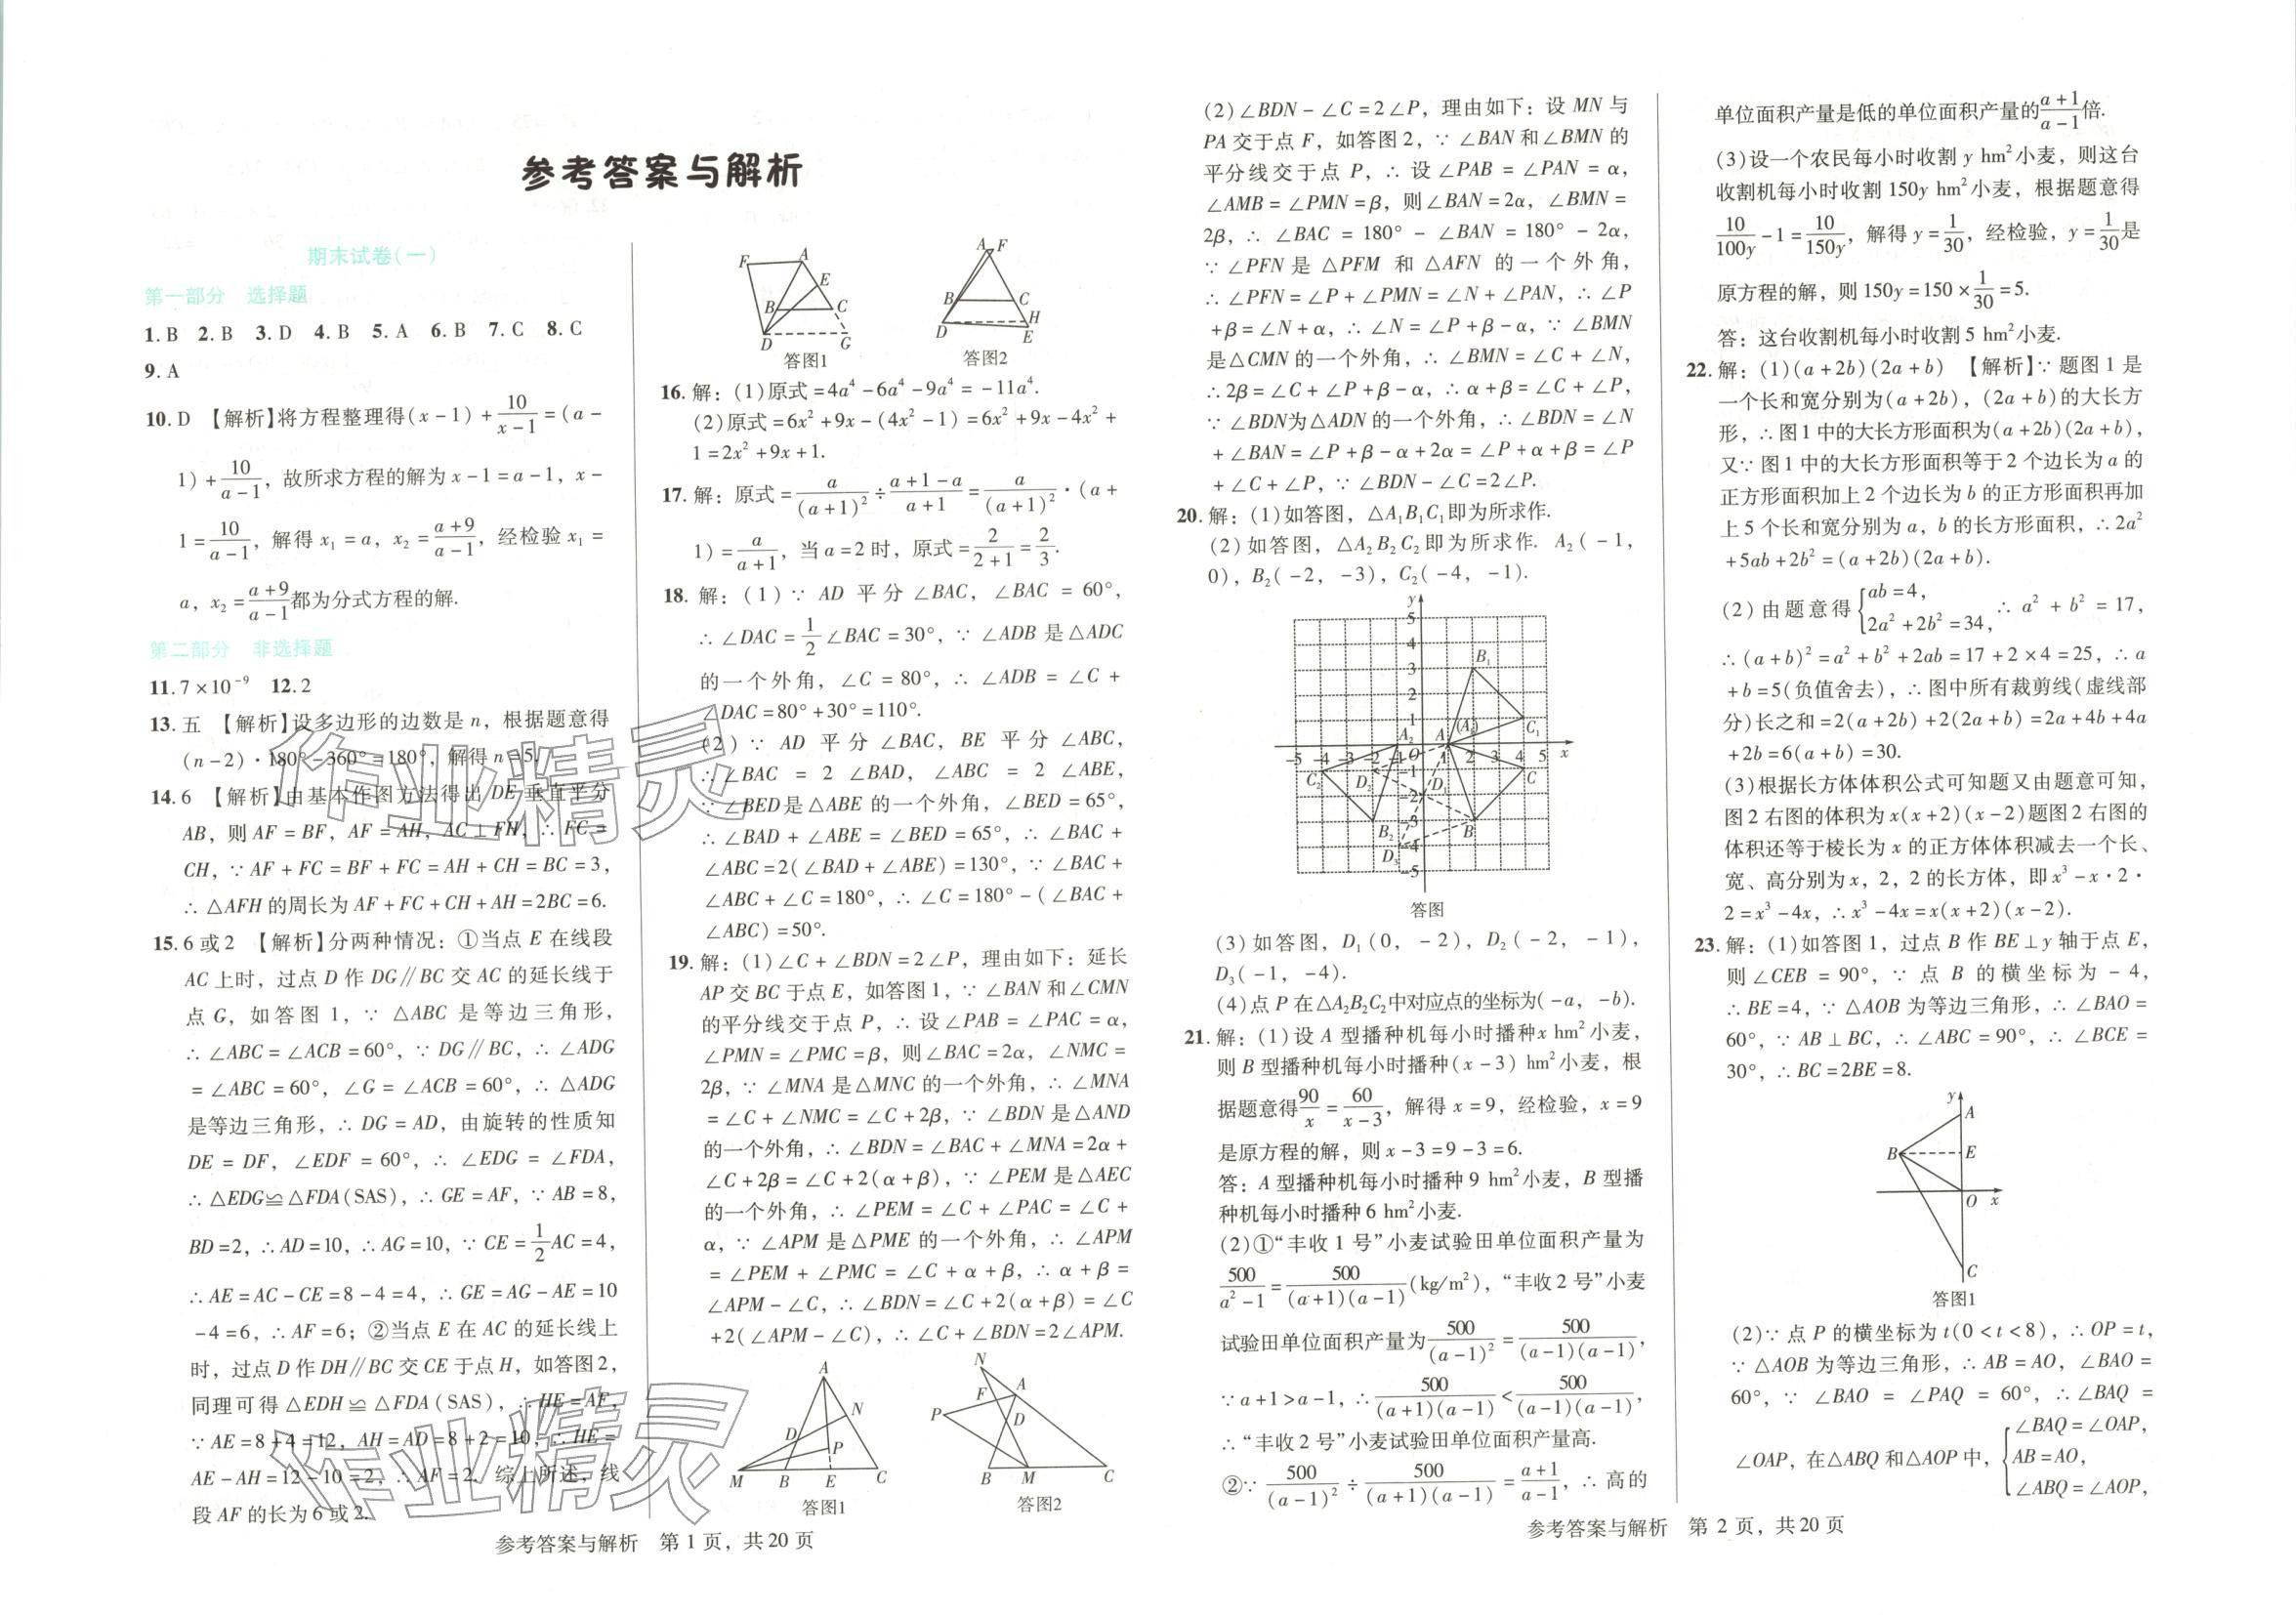 参考答案与解析
期末试卷(一)
第一部分 选择题
1. B 2. B 3. D 4. B 5. A 6. B 7. C 8. C
9. A
10. D 【解析】将方程整理得(x-1)+10/(x-1)=(a-
1)+10/(a-1),故所求方程的解为x-1=a-1,x-
1=10/(a-1),解得x₁=a,x₂=(a+9)/(a-1),经检验x₁=
a,x₂=(a+9)/(a-1)都为分式方程的解.
第二部分 非选择题
11. 7×10⁻⁹ 12. 2
13. 五 【解析】设多边形的边数是n,根据题意得
(n-2)·180°-360°=180°,解得n=5.
14. 6 【解析】由基本作图方法得出DE垂直平分
AB,则AF=BF,AF=AH,AC⊥FH,∴FC=
CH,∵AF+FC=BF+FC=AH+CH=BC=3,
∴△AFH的周长为AF+FC+CH+AH=2BC=6.
15. 6或2 【解析】分两种情况:①当点E在线段
AC上时,过点D作DG∥BC交AC的延长线于
点G,如答图1,∵△ABC是等边三角形,
∴∠ABC=∠ACB=60°,∵DG∥BC,∴∠ADG
=∠ABC=60°,∠G=∠ACB=60°,∴△ADG
是等边三角形,∴DG=AD,由旋转的性质知
DE=DF,∠EDF=60°,∴∠EDG=∠FDA,
∴△EDG≌△FDA(SAS),∴GE=AF,∵AB=8,
BD=2,∴AD=10,∴AG=10,∵CE=1/2AC=4,
∴AE=AC-CE=8-4=4,∴GE=AG-AE=10
-4=6,∴AF=6;②当点E在AC的延长线上
时,过点D作DH∥BC交CE于点H,如答图2,
同理可得△EDH≌△FDA(SAS),∴HE=AF,
∵AE=8+4=12,AH=AD=8+2=10,∴HE=
AE-AH=12-10=2,∴AF=2.综上所述,线
段AF的长为6或2.
F A E B C D G
答图1
A F B C D H E
答图2
16. 解:(1)原式=4a⁴-6a⁴-9a⁴=-11a⁴.
(2)原式=6x²+9x-(4x²-1)=6x²+9x-4x²+
1=2x²+9x+1.
17. 解:原式=a/(a+1)²÷(a+1-a)/(a+1)=a/(a+1)²·(a+
1)=a/(a+1),当a=2时,原式=2/(2+1)=2/3.
18. 解:(1)∵AD平分∠BAC,∠BAC=60°,
∴∠DAC=1/2∠BAC=30°,∵∠ADB是△ADC
的一个外角,∠C=80°,∴∠ADB=∠C+
∠DAC=80°+30°=110°.
(2)∵AD平分∠BAC,BE平分∠ABC,
∴∠BAC=2∠BAD,∠ABC=2∠ABE,
∵∠BED是△ABE的一个外角,∠BED=65°,
∴∠BAD+∠ABE=∠BED=65°,∴∠BAC+
∠ABC=2(∠BAD+∠ABE)=130°,∵∠BAC+
∠ABC+∠C=180°,∴∠C=180°-(∠BAC+
∠ABC)=50°.
19. 解:(1)∠C+∠BDN=2∠P,理由如下:延长
AP交BC于点E,如答图1,∵∠BAN和∠CMN
的平分线交于点P,∴设∠PAB=∠PAC=α,
∠PMN=∠PMC=β,则∠BAC=2α,∠NMC=
2β,∵∠MNA是△MNC的一个外角,∴∠MNA
=∠C+∠NMC=∠C+2β,∵∠BDN是△AND
的一个外角,∴∠BDN=∠BAC+∠MNA=2α+
∠C+2β=∠C+2(α+β),∵∠PEM是△AEC
的一个外角,∴∠PEM=∠C+∠PAC=∠C+
α,∵∠APM是△PME的一个外角,∴∠APM
=∠PEM+∠PMC=∠C+α+β,∴α+β=
∠APM-∠C,∴∠BDN=∠C+2(α+β)=∠C
+2(∠APM-∠C),∴∠C+∠BDN=2∠APM.
A N D P M B E C
答图1
N F A P D B M C
答图2
参考答案与解析 第1页,共20页
(2)∠BDN-∠C=2∠P,理由如下:设MN与
PA交于点F,如答图2,∵∠BAN和∠BMN的
平分线交于点P,∴设∠PAB=∠PAN=α,
∠AMB=∠PMN=β,则∠BAN=2α,∠BMN=
2β,∴∠BAC=180°-∠BAN=180°-2α,
∵∠PFN是△PFM和△AFN的一个外角,
∴∠PFN=∠P+∠PMN=∠N+∠PAN,∴∠P
+β=∠N+α,∴∠N=∠P+β-α,∵∠BMN
是△CMN的一个外角,∴∠BMN=∠C+∠N,
∴2β=∠C+∠P+β-α,∴α+β=∠C+∠P,
∵∠BDN为△ADN的一个外角,∴∠BDN=∠N
+∠BAN=∠P+β-α+2α=∠P+α+β=∠P
+∠C+∠P,∵∠BDN-∠C=2∠P.
20. 解:(1)如答图,△A₁B₁C₁即为所求作.
(2)如答图,△A₂B₂C₂即为所求作. A₂(-1,
0),B₂(-2,-3),C₂(-4,-1).
y 5 4 3 2 1 B₁ C₁ (A₁) A A₂
-5 -4 -3 -2 -1 O 1 2 3 4 5 x
C₂ D₂ D₁ C -1 -2 -3 -4 -5 B₂ B D₃
答图
(3)如答图,D₁(0,-2),D₂(-2,-1),
D₃(-1,-4).
(4)点P在△A₂B₂C₂中对应点的坐标为(-a,-b).
21. 解:(1)设A型播种机每小时播种x hm²小麦,
则B型播种机每小时播种(x-3) hm²小麦,根
据题意得90/x=60/(x-3),解得x=9,经检验,x=9
是原方程的解,则x-3=9-3=6.
答:A型播种机每小时播种9 hm²小麦,B型播
种机每小时播种6 hm²小麦.
(2)①“丰收1号”小麦试验田单位面积产量为
500/(a²-1)=500/((a+1)(a-1))(kg/m²),“丰收2号”小麦
试验田单位面积产量为500/(a-1)²=500/((a-1)(a-1)),
∵a+1>a-1,∴500/((a+1)(a-1))<500/((a-1)(a-1)),
∴“丰收2号”小麦试验田单位面积产量高.
②∵500/(a-1)²÷500/((a+1)(a-1))=(a+1)/(a-1),∴高的
单位面积产量是低的单位面积产量的(a+1)/(a-1)倍.
(3)设一个农民每小时收割y hm²小麦,则这台
收割机每小时收割150y hm²小麦,根据题意得
10/100y-1=10/150y,解得y=1/30,经检验,y=1/30是
原方程的解,则150y=150×1/30=5.
答:这台收割机每小时收割5 hm²小麦.
22. 解:(1)(a+2b)(2a+b) 【解析】∵题图1是
一个长和宽分别为(a+2b),(2a+b)的大长方
形,∴图1中的大长方形面积为(a+2b)(2a+b),
又∵图1中的大长方形面积等于2个边长为a的
正方形面积加上2个边长为b的正方形面积再加
上5个长和宽分别为a,b的长方形面积,∴2a²
+5ab+2b²=(a+2b)(2a+b).
(2)由题意得{ab=4,2a²+2b²=34,∴a²+b²=17,
∴(a+b)²=a²+b²+2ab=17+2×4=25,∴a
+b=5(负值舍去),∴图中所有裁剪线(虚线部
分)长之和=2(a+2b)+2(2a+b)=2a+4b+4a
+2b=6(a+b)=30.
(3)根据长方体体积公式可知题又由题意可知,
图2右图的体积为x(x+2)(x-2)题图2右图的
体积还等于棱长为x的正方体体积减去一个长、
宽、高分别为x,2,2的长方体,即x³-x·2·
2=x³-4x,∴x³-4x=x(x+2)(x-2).
23. 解:(1)如答图1,过点B作BE⊥y轴于点E,
则∠CEB=90°,∵点B的横坐标为-4,
∴BE=4,∵△AOB为等边三角形,∴∠BAO=
60°,∵AB⊥BC,∴∠ABC=90°,∴∠BCE=
30°,∴BC=2BE=8.
y A B E O x C
答图1
(2)∵点P的横坐标为t(0<t<8),∴OP=t,
∵△AOB为等边三角形,∴AB=AO,∠BAO=
60°,∵∠BAO=∠PAQ=60°,∴∠BAQ=
∠OAP,在△ABQ和△AOP中,{∠BAQ=∠OAP,
AB=AO,
∠ABQ=∠AOP,
参考答案与解析 第2页,共20页
作业精灵
作业精灵